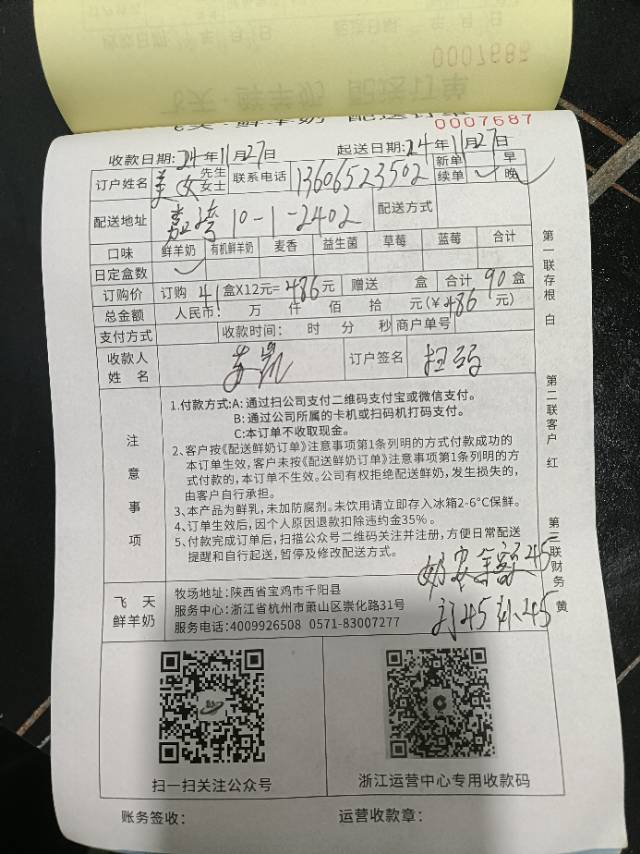 飞天·鲜羊奶 配送订单
0007687
收款日期:24年11月27日 起送日期:24年11月27日
订户姓名 美女 先生 女士 联系电话 13606523502 新单 早
续单 ✓ 晚
配送地址 10-1-2402 配送方式
口味 鲜羊奶 有机鲜羊奶 麦香 益生菌 草莓 蓝莓 合计
日定盒数 ✓
订购价 订购 41 盒X12元=486元 赠送 盒 合计 90 盒
总金额 人民币: 万 仟 佰 拾 元(¥486元)
支付方式 收款时间: 时 分 秒 商户单号
收款人姓名 订户签名
注意事项
1.付款方式:A:通过扫公司支付二维码支付宝或微信支付。
B:通过公司所属的卡机或扫码机打码支付。
C:本订单不收取现金。
2、客户按《配送鲜奶订单》注意事项第1条列明的方式付款成功的
本订单生效,客户未按《配送鲜奶订单》注意事项第1条列明的方
式付款的,本订单不生效。公司有权拒绝配送鲜奶,发生损失的,
由客户自行承担。
3、本产品为鲜乳,未加防腐剂。未饮用请立即存入冰箱2-6°C保鲜。
4、订单生效后,因个人原因退款扣除违约金35%。
5、付款完成订单后,扫描公众号二维码关注并注册,方便日常配送
提醒和自行起送,暂停及修改配送方式。
45
45 45
飞天鲜羊奶
牧场地址:陕西省宝鸡市千阳县
服务中心:浙江省杭州市萧山区崇化路31号
服务电话:4009926508 0571-83007277
扫一扫关注公众号 浙江运营中心专用收款码
账务签收: 运营收款章:
第一联存根 白
第二联客户 红
第三联财务 黄